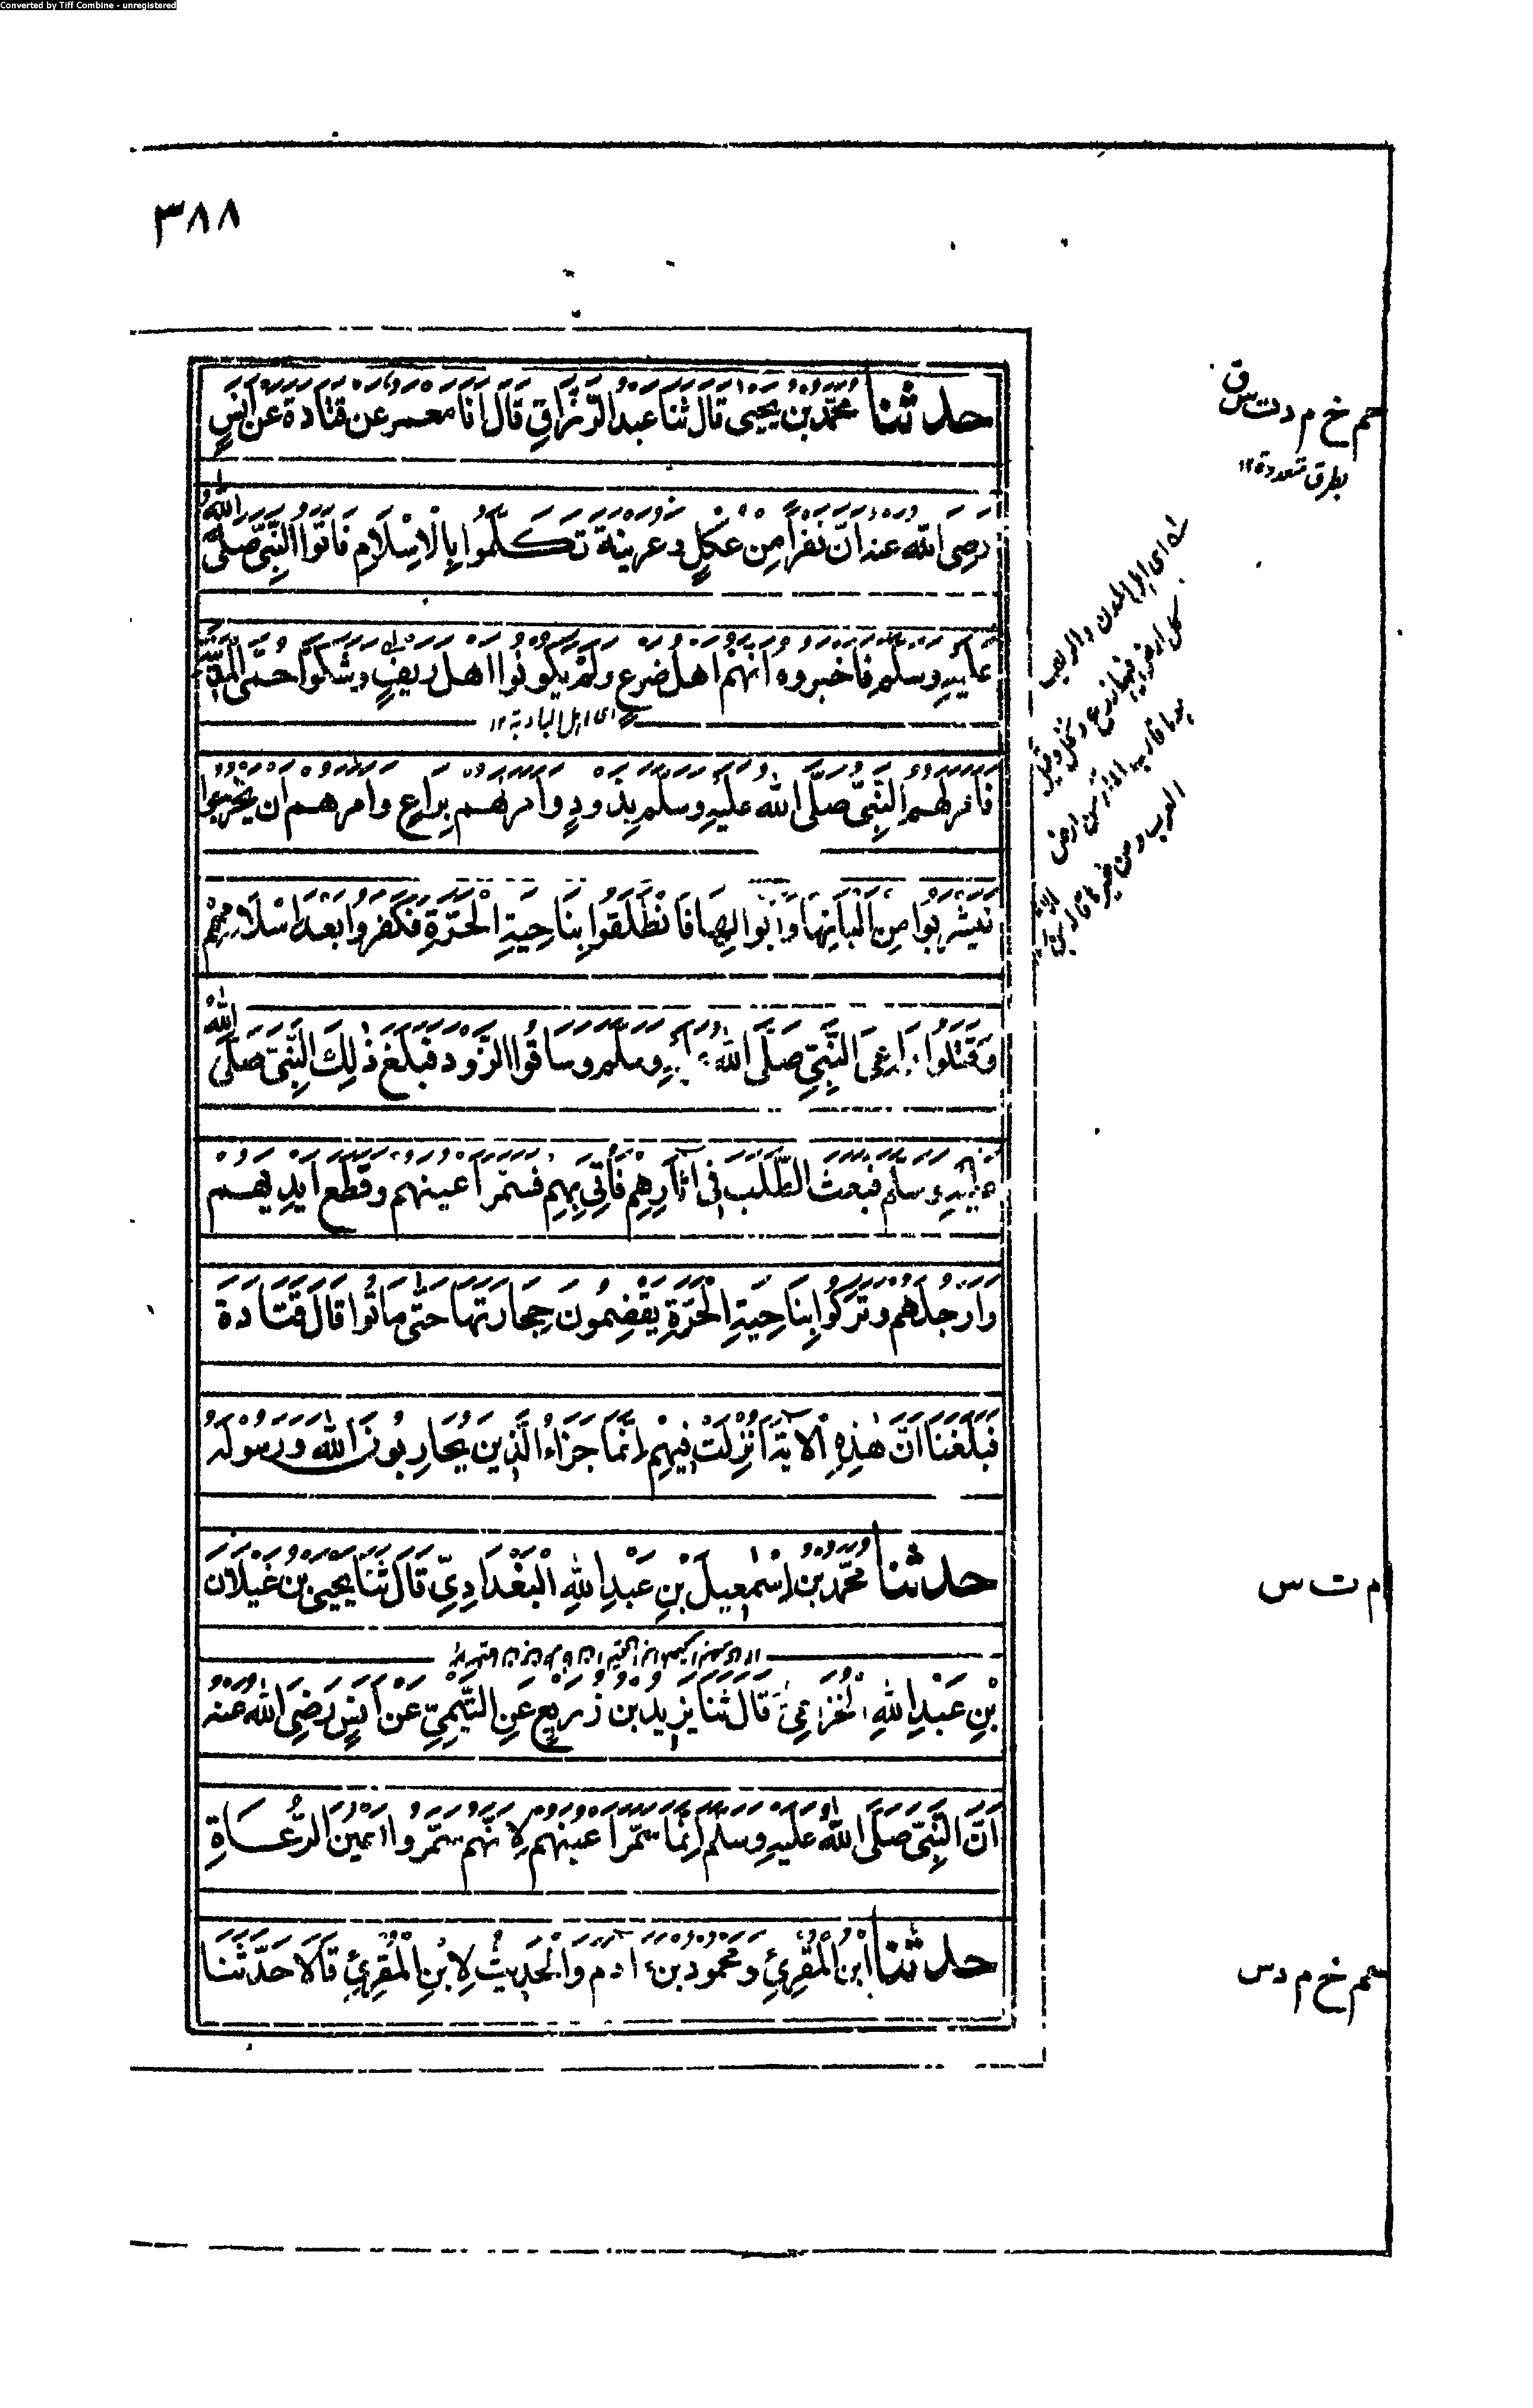 Converted by Tiff Combine - unregistered
٣٨٨
حدثنا مُحَمَّدُ بْنُ يَحْيَىٰ قَالَ ثَنَا عَبْدُ الرَّزَّاقِ قَالَ اَنَا مَعْمَرٌ عَنْ قَتَادَةَ عَنْ اَنَسٍ
حم خ م د ت س ق
بطرق متعددة ١٢
رَضِیَ اللّٰهُ عَنْهُ اَنَّ نَفَرًا مِنْ عُكْلٍ وَعُرَيْنَةَ تَكَلَّمُوا بِالْاِسْلَامِ فَاَتَوُا النَّبِیَّ صَلَّی اللّٰهُ
عَلَيْهِ وَسَلَّمَ فَاَخْبَرُوهُ اَنَّهُمْ اَهْلُ ضَرْعٍ وَلَمْ يَكُونُوا اَهْلَ رِيفٍ وَشَكَوْا حُمَّی الْمَدِينَةِ
ای اہل البادیة ١٢
فَاَمَرَ لَهُمُ النَّبِیُّ صَلَّی اللّٰهُ عَلَيْهِ وَسَلَّمَ بِذَوْدٍ وَاَمَرَ لَهُمْ بِرَاعٍ وَاَمَرَهُمْ اَنْ يَخْرُجُوا
فَيَشْرَبُوا مِنْ اَلْبَانِهَا وَاَبْوَالِهَا فَانْطَلَقُوا بِنَاحِيَةِ الْحَرَّةِ فَكَفَرُوا بَعْدَ اِسْلَامِهِمْ
وَقَتَلُوا رَاعِیَ النَّبِیِّ صَلَّی اللّٰهُ عَلَيْهِ وَسَلَّمَ وَسَاقُوا الذَّوْدَ فَبَلَغَ ذٰلِكَ النَّبِیَّ صَلَّی اللّٰهُ
عَلَيْهِ وَسَلَّمَ فَبَعَثَ الطَّلَبَ فِی اٰثَارِهِمْ فَاُتِیَ بِهِمْ فَسَمَرَ اَعْيُنَهُمْ وَقَطَعَ اَيْدِيَهُمْ
وَاَرْجُلَهُمْ وَتُرِكُوا بِنَاحِيَةِ الْحَرَّةِ يَقْضِمُونَ حِجَارَتَهَا حَتّٰی مَاتُوا قَالَ قَتَادَةُ
فَبَلَغَنَا اَنَّ هٰذِهِ الْاٰيَةَ اُنْزِلَتْ فِيهِمْ اِنَّمَا جَزَاءُ الَّذِينَ يُحَارِبُونَ اللّٰهَ وَرَسُولَهُ
حدثنا مُحَمَّدُ بْنُ اِسْمٰعِيلَ بْنِ عَبْدِ اللّٰهِ الْبَغْدَادِیُّ قَالَ ثَنَا يَحْيَی بْنُ غَيْلَانَ
م ت س
بْنِ عَبْدِ اللّٰهِ الْخُزَاعِیُّ قَالَ ثَنَا يَزِيدُ بْنُ زُرَيْعٍ عَنِ التَّيْمِیِّ عَنْ اَنَسٍ رَضِیَ اللّٰهُ عَنْهُ
اَنَّ النَّبِیَّ صَلَّی اللّٰهُ عَلَيْهِ وَسَلَّمَ اِنَّمَا سَمَرَ اَعْيُنَهُمْ لِاَنَّهُمْ سَمَرُوا اَعْيُنَ الرُّعَاةِ
حدثنا ابْنُ الْمُقْرِئِ وَمَحْمُودُ بْنُ اٰدَمَ وَالْحَدِيثُ لِابْنِ الْمُقْرِئِ قَالَا حَدَّثَنَا
حم خ م د س